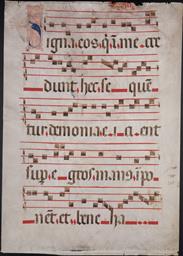 Signa eos q̄ i me cre
dunt. hec. se quē
tur. demonia e i ci ent
sup. e gros man9. īpo
nēt. et. bene ha